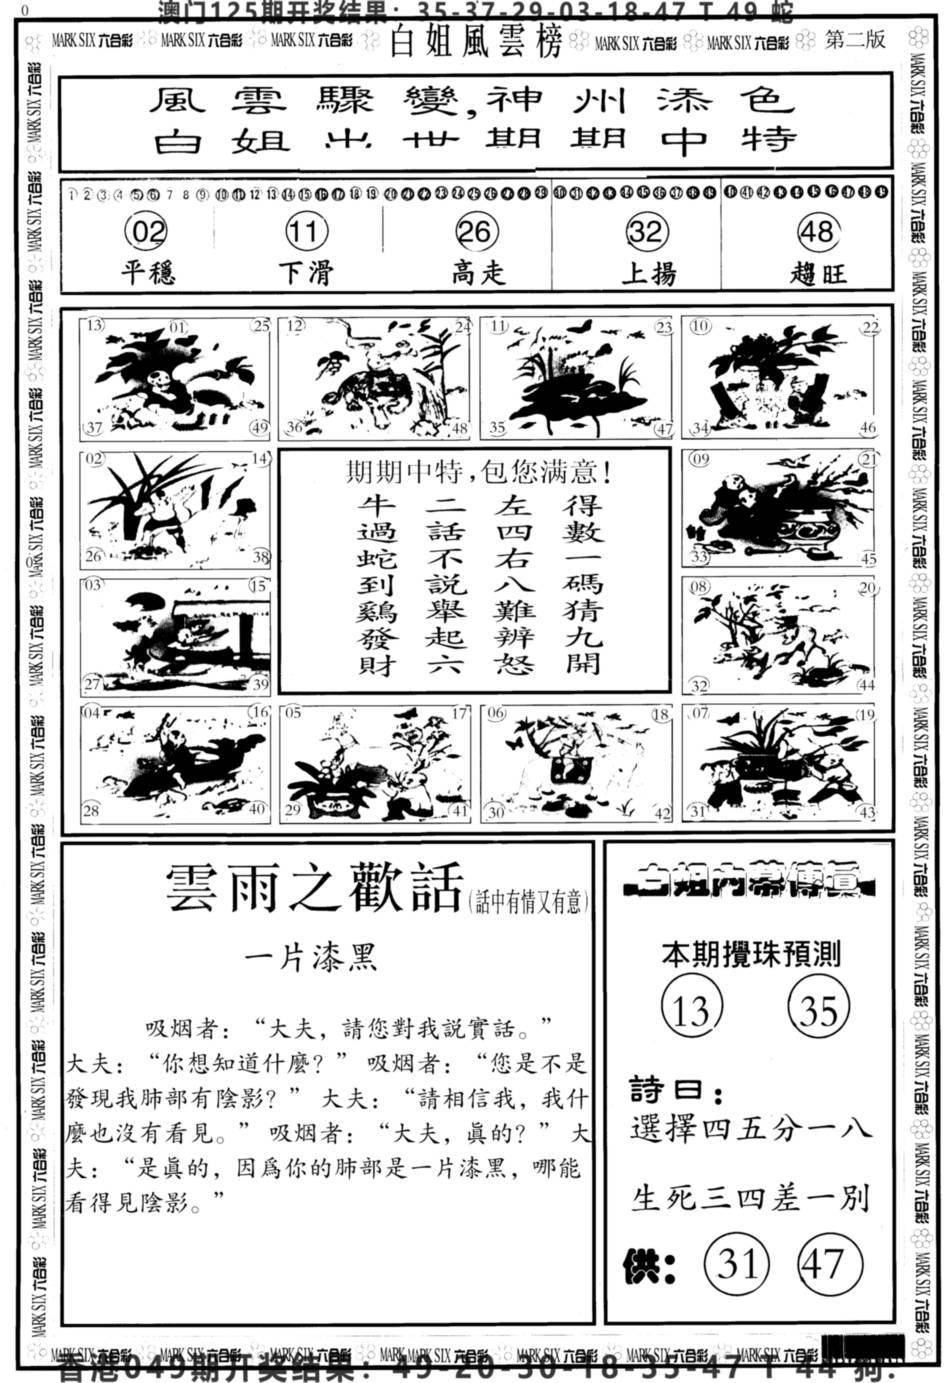 0
澳门125期开奖结果：35-37-29-03-18-47 T 49 蛇
MARK SIX 六合彩 MARK SIX 六合彩 MARK SIX 六合彩 白姐風雲榜 MARK SIX 六合彩 MARK SIX 六合彩 第二版
風雲驟變,神州添色
白姐出世期期中特
02 11 26 32 48
平穩 下滑 高走 上揚 趨旺
13 01 25 12 24 11 23 10 22
37 49 36 48 35 47 34 46
02 14 09 21
26 38 33 45
03 15 08 20
27 39 32 44
04 16 05 17 06 18 07 19
28 40 29 41 30 42 31 43
期期中特,包您满意!
得數一碼猜九開
左四右八難辨怒
二話不説舉起六
牛過蛇到鷄發財
雲雨之歡話(話中有情又有意)
一片漆黑
吸烟者：“大夫，請您對我説實話。”
大夫：“你想知道什麼？” 吸烟者：“您是不是
發現我肺部有陰影？” 大夫：“請相信我，我什
麼也沒有看見。” 吸烟者：“大夫，眞的？” 大
夫：“是眞的，因爲你的肺部是一片漆黑，哪能
看得見陰影。”
白姐內幕傳眞
本期攪珠預測
13 35
詩曰：
選擇四五分一八
生死三四差一別
供： 31 47
MARK SIX 六合彩 MARK SIX 六合彩 MARK SIX 六合彩 MARK SIX 六合彩 MARK SIX 六合彩 MARK SIX 六合彩 MARK SIX 六合彩
香港049期开奖结果：49-20-30-18-35-47 T 44 狗.